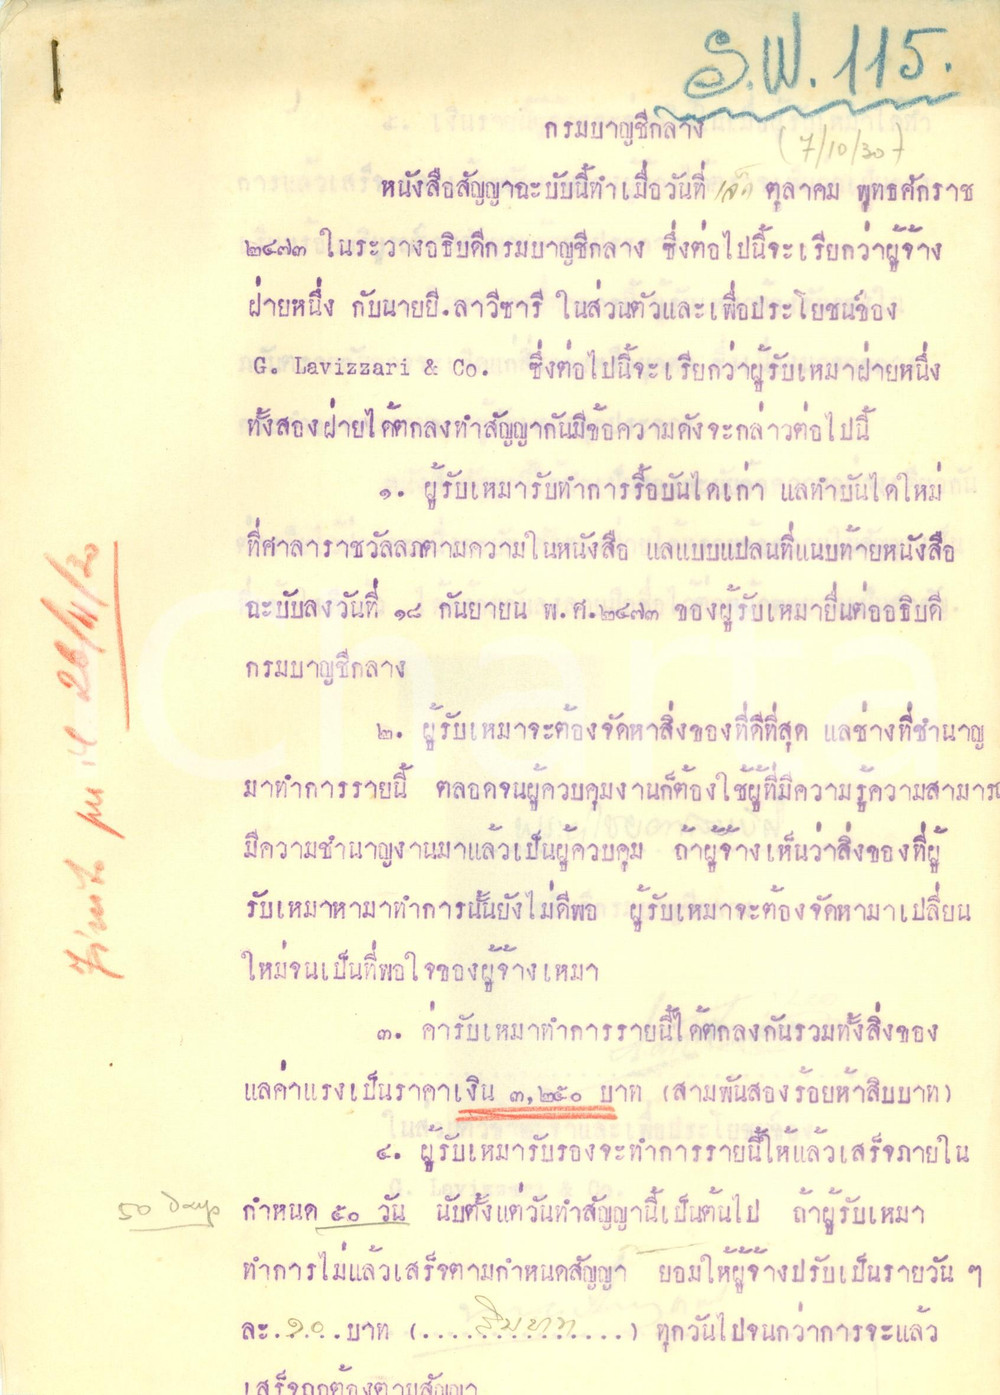 S.W. 115.
กรมบาญชีกลาง
(7/10/30)
หนังสือสัญญาฉะบับนี้ทำเมื่อวันที่ เจ็ด ตุลาคม พุทธศักราช
๒๔๗๓ ในระวางอธิบดีกรมบาญชีกลาง ซึ่งต่อไปนี้จะเรียกว่าผู้จ้าง
ฝ่ายหนึ่ง กับนายยี.ลาวีซารี ในส่วนตัวและเพื่อประโยชน์ของ
G. Lavizzari & Co. ซึ่งต่อไปนี้จะเรียกว่าผู้รับเหมาฝ่ายหนึ่ง
ทั้งสองฝ่ายได้ตกลงทำสัญญากันมีข้อความดังจะกล่าวต่อไปนี้
๑. ผู้รับเหมารับทำการรื้อบันไดเก่า แลทำบันไดใหม่
ที่ศาลาราชวัลลภตามความในหนังสือ แลแบบแปลนที่แนบท้ายหนังสือ
ฉะบับลงวันที่ ๑๘ กันยายน พ.ศ.๒๔๗๓ ของผู้รับเหมายื่นต่ออธิบดี
กรมบาญชีกลาง
๒. ผู้รับเหมาจะต้องจัดหาสิ่งของที่ดีที่สุด แลช่างที่ชำนาญ
มาทำการรายนี้ ตลอดจนผู้ควบคุมงานก็ต้องใช้ผู้ที่มีความรู้ความสามารถ
มีความชำนาญงานมาแล้วเป็นผู้ควบคุม ถ้าผู้จ้างเห็นว่าสิ่งของที่ผู้
รับเหมาหามาทำการนั้นยังไม่ดีพอ ผู้รับเหมาจะต้องจัดหามาเปลี่ยน
ใหม่จนเป็นที่พอใจของผู้จ้างเหมา
๓. ค่ารับเหมาทำการรายนี้ได้ตกลงกันรวมทั้งสิ่งของ
แลค่าแรงเป็นราคาเงิน ๓,๒๕๐ บาท (สามพันสองร้อยห้าสิบบาท)
๔. ผู้รับเหมารับรองจะทำการรายนี้ให้แล้วเสร็จภายใน
50 days
กำหนด ๕๐ วัน นับตั้งแต่วันทำสัญญานี้เป็นต้นไป ถ้าผู้รับเหมา
ทำการไม่แล้วเสร็จตามกำหนดสัญญา ยอมให้ผู้จ้างปรับเป็นรายวัน ๆ
ละ.๑๐..บาท (....สิบบาท....) ทุกวันไปจนกว่าการจะแล้ว
เสร็จถูกต้องตามสัญญา
26/11/30